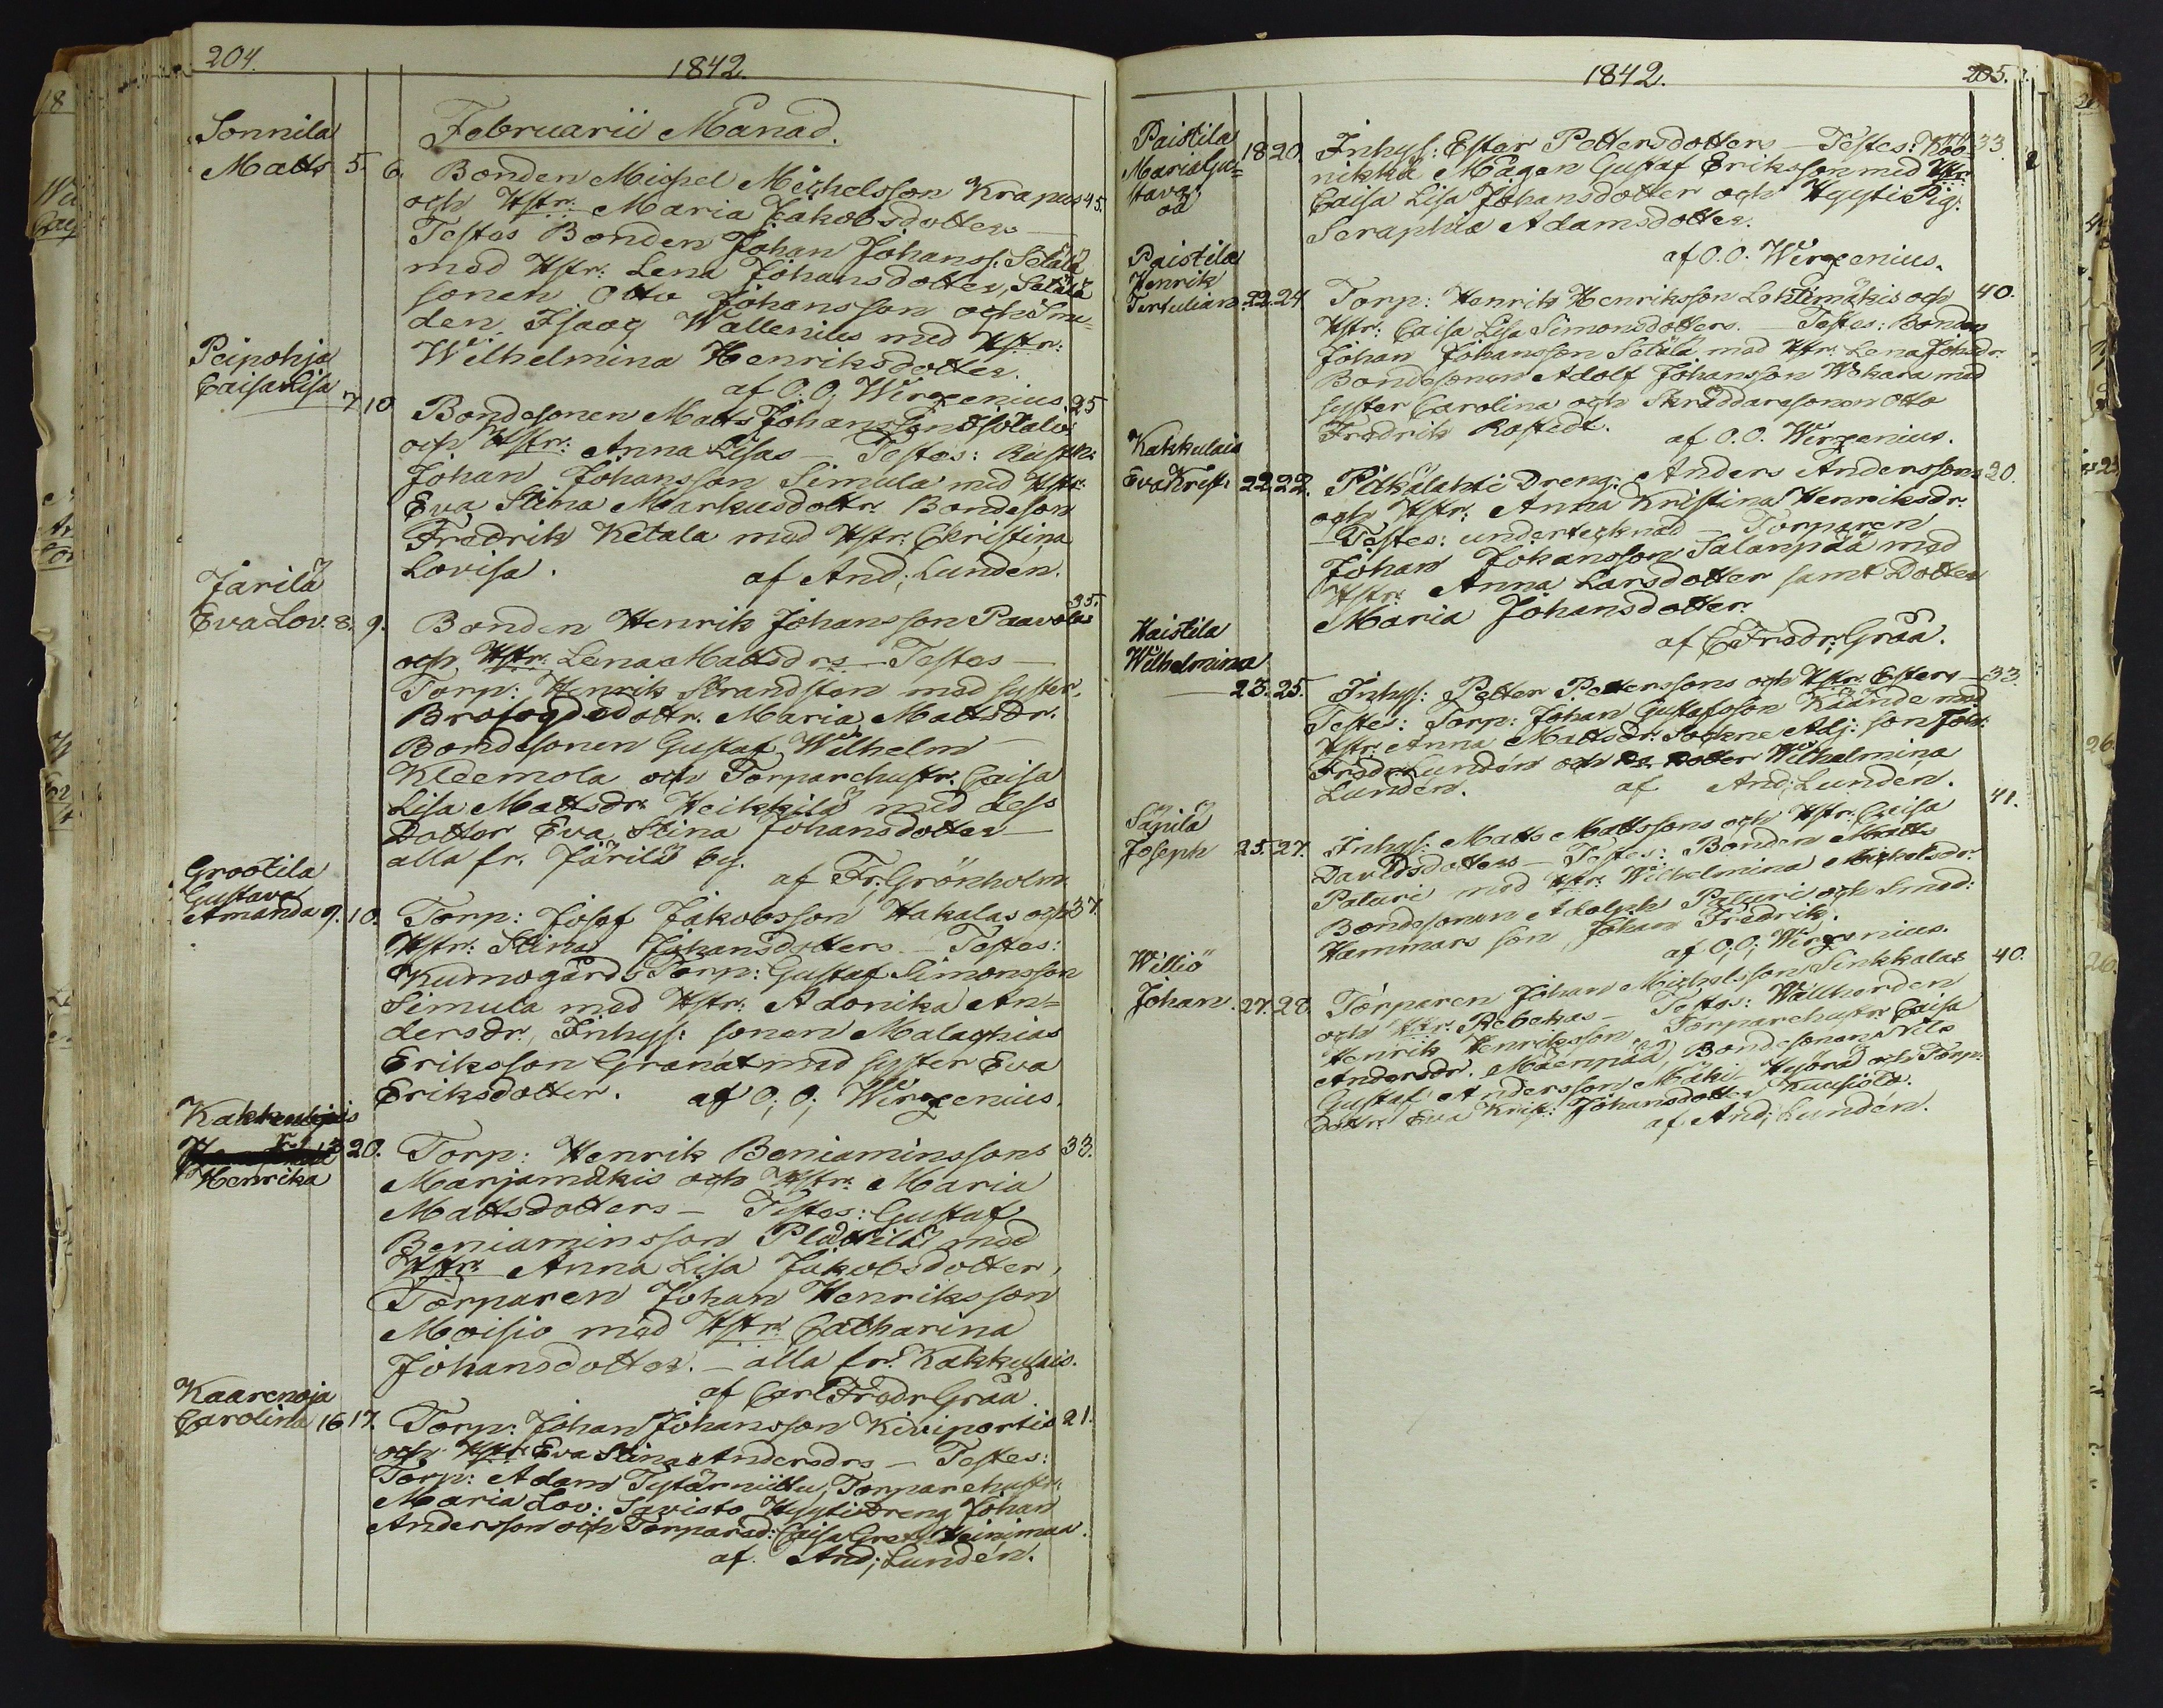 204.
1842.
Februarii Månad.
Sonnila
Matts 5. 6. Bonden Michel Michelsson Krapus 45.
och Hstr. Maria Jakobsdotters —
Testes Bonden Johan Johanss: Setälä
med Hstr. Lena Johansdotter, Setälä
sonen Otto Johansson och Sme-
den Isaac Wallenius med Hstr:
Wilhelmina Henriksdotter.
af O. O. Wirzenius
Peipohja
Caisa Lisa 7. 10. Bondesonen Matts Johansson Isotalos 25
och Hstr: Anna Lisas — Testes: Rusth:
Johan Johansson Simula med Hstr.
Eva Stina Markusdottr. Bondeson
Fredrik Ketala med Hstr: Christina
Lovisa. af And; Lunden.
Järilä
Eva Lov. 8. 9. Bonden Henrik Johansson Paavolas 35.
och Hstr. Lena Mattsdrs — Testes —
Torp: Henrik Strandsten med syster,
Brofogdedottr. Maria Mattsdr.
Bondesonen Gustaf Wilhelm —
Kleemola och Torparehustr. Caisa
Lisa Mattsdr. Heikkilä med dess
Dotter Eva Stina Johansdotter —
alla fr. Järilä by.
af Fr. Grönholm
Grootila
Gustava
Amanda 9. 10. Torp: Josef Jakobsson Hakalas och 37.
Hstr: Stinas Johansdotters — Testes:
Kumogårds Torp: Gustaf Simonsson
Simula med Hstr. Adonika An-
dersdr., Inhys: sonen Malachias
Eriksson Granat med syster Eva
Eriksdotter. af O; O; Wirzenius.
Kakkulais
Henrika 13 20. Torp: Henrik Beniaminssons 33.
Marjamäkis och Hstr. Maria
Mattsdotters — Testes: Gustaf
Beniaminsson med
Hstr. Anna Lisa Jakobsdotter,
Torparen Johan Henriksson
Moisio med Hstr. Catharina
Johansdotter. — alla fr. Kakkulais.
af Carl Fredr Gråå
Kaarenoja
Carolina 16 17. Torp: Johan Johansson Kiviportis 21.
och Hstr. Eva Stinas Andersdrs — Testes:
Torp: Adam Tytärniittu, Torparehustr.
Maria Lov: Savisto Hyyti Dreng Johan
Andersson och Torpared: Caisa Gret: Heinimaa.
af And; Lundén.
1842.
205.
Paistila
Maria Gu=
stava
oä 18 20. Inhys: Ester Pettersdotters — Testes: Koo= 33.
nikka Mågen Gustaf Eriksson med Hstr.
Caisa Lisa Johansdotter och Hyyti Pig:
Seraphia Adamsdotter.
af O. O. Wirzenius.
Paistila
Henrik
Tertulian. 22. 24. Torp: Henrik Henriksson Lehtimäkis och 40.
Hstr: Caisa Lisa Simonsdotters. — Testes: Bonden
Johan Johansson Setälä med Hstr. Lena Johsdr.
Bondesonen Adolf Johansson Wokara med
syster Carolina och Skräddaresonen Otto
Fredrik Rostedt. af O. O. Wirzenius.
Kakkulais
Eva Krist: 22 22. Pitkälahti Dreng: Anders Anderssons 20.
och Hstr: Anna Kristina Henriksdr.
— Testes: undertecknad — Torparen
Johan Johansson Salanpää med
Hstr. Anna Larsdotter samt Dotter
Maria Johansdotter.
af C Fredr: Gråå.
Haistila
Wilhelmina
23. 25. Inhys: Petter Petterssons och Hstr. Esters — 33.
Testes: Torp: Johan Gustafsson Käände med
Hstr. Anna Mattsdr. Sockne Adj: son Joh:
Fredr Lundén och Dotter Wilhelmina
Lundén. af And; Lunden.
Säpilä
Joseph 25. 27. Inhys: Matts Mattssons och Hstr. Caisa 41.
Davidsdotters — Testes: Bonden Matts
Paturi med Hstr. Wilhelmina Michelsdr.
Bondesonen Adolph Paturi och Smed:
Hammars son Johan Fredrik.
af O; O; Wirzenius.
Williö
Johan. 27. 28. Torparen Johan Michelsson Sinkkalas 40.
och Hstr. Rebekas — Testes: Wallherden
Henrik Henriksson, Torparehustr. Caisa
Andersdr. Mäenpää, Bondesonen Nils
Gustaf Andersson Mäki Hyörä och Torp:
dottr. Eva Krist: Johansdotter Kuusiola.
af And; Lundén.